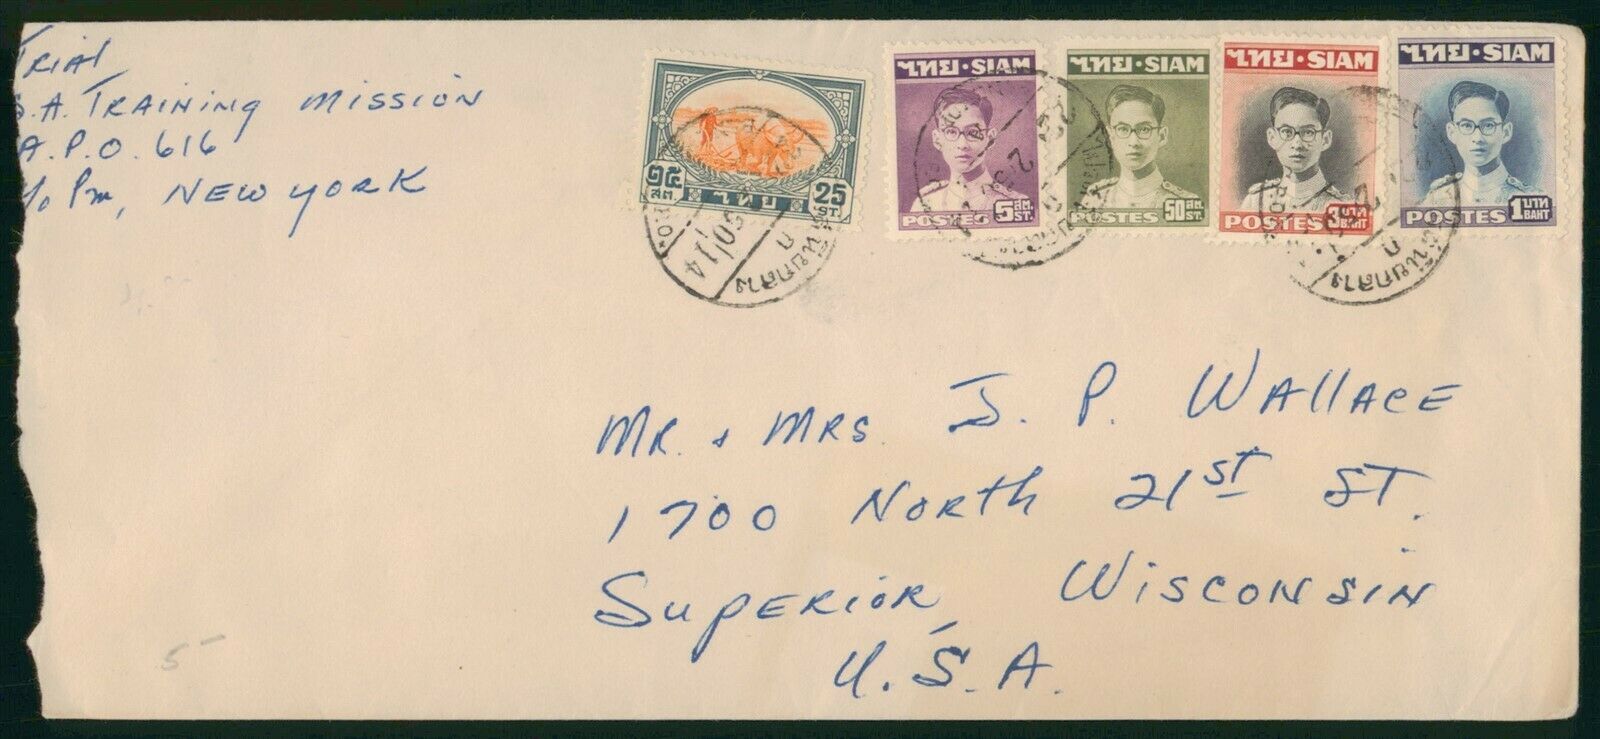 TRIAL
S.A. TRAINING MISSION
A.P.O. 616
℅ Pm, NEW YORK
๒๕ 25
สต. ไทย ST.
ไทย · SIAM
POSTES 5 สต. ST.
ไทย · SIAM
POSTES 50 สต. ST.
ไทย · SIAM
POSTES 3 บาท BAHT
ไทย · SIAM
POSTES 1 บาท BAHT
MR. + MRS. J. P. WALLACE
1700 NORTH 21ST ST.
SUPERIOR, WISCONSIN
U.S.A.
5